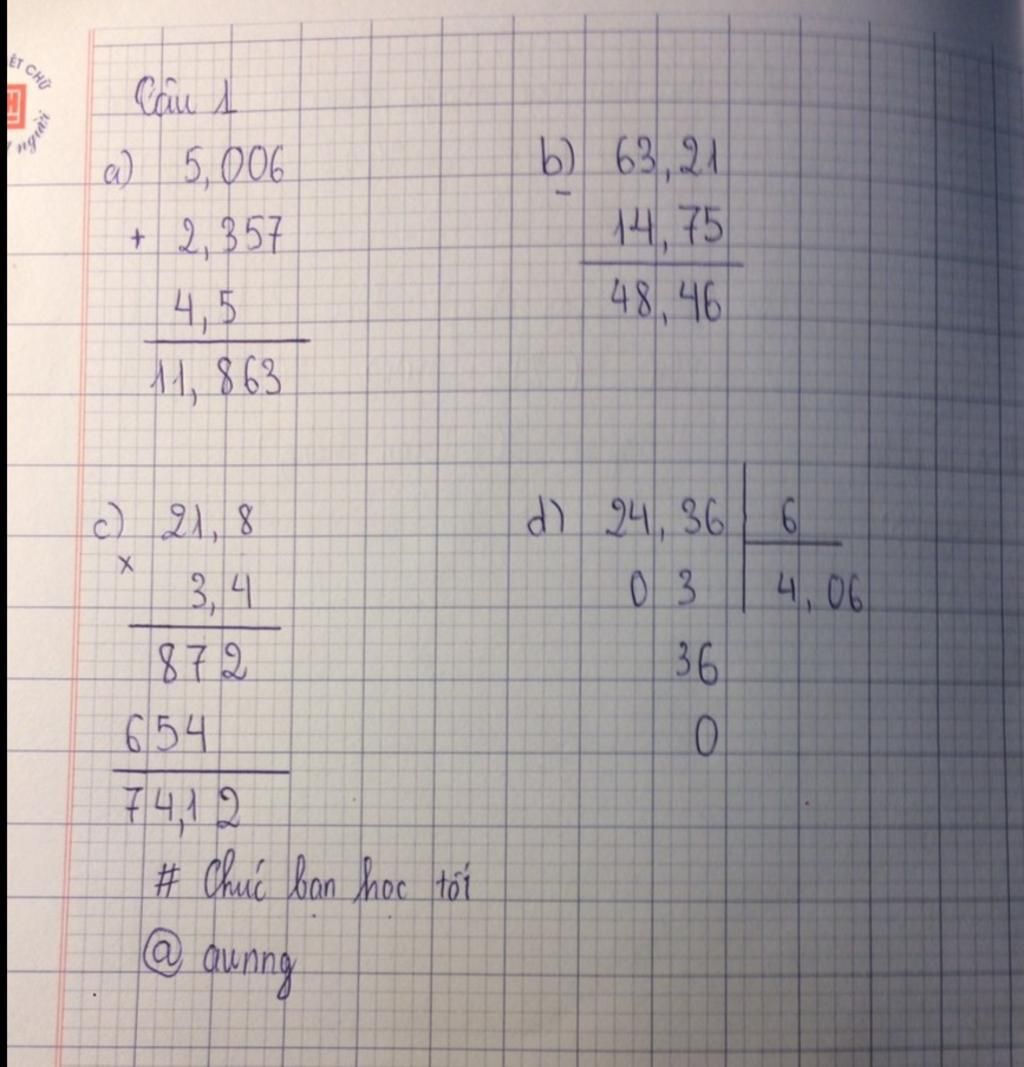 ẾT CHỮ
người
Câu 1
a) 5,006
+ 2,357
4,5
11,863
b) 63,21
-
14,75
48,46
c) 21,8
x
3,4
872
654
74,12
d) 24,36 6
03 4,06
36
0
# Chúc bạn học tốt
@ aunng